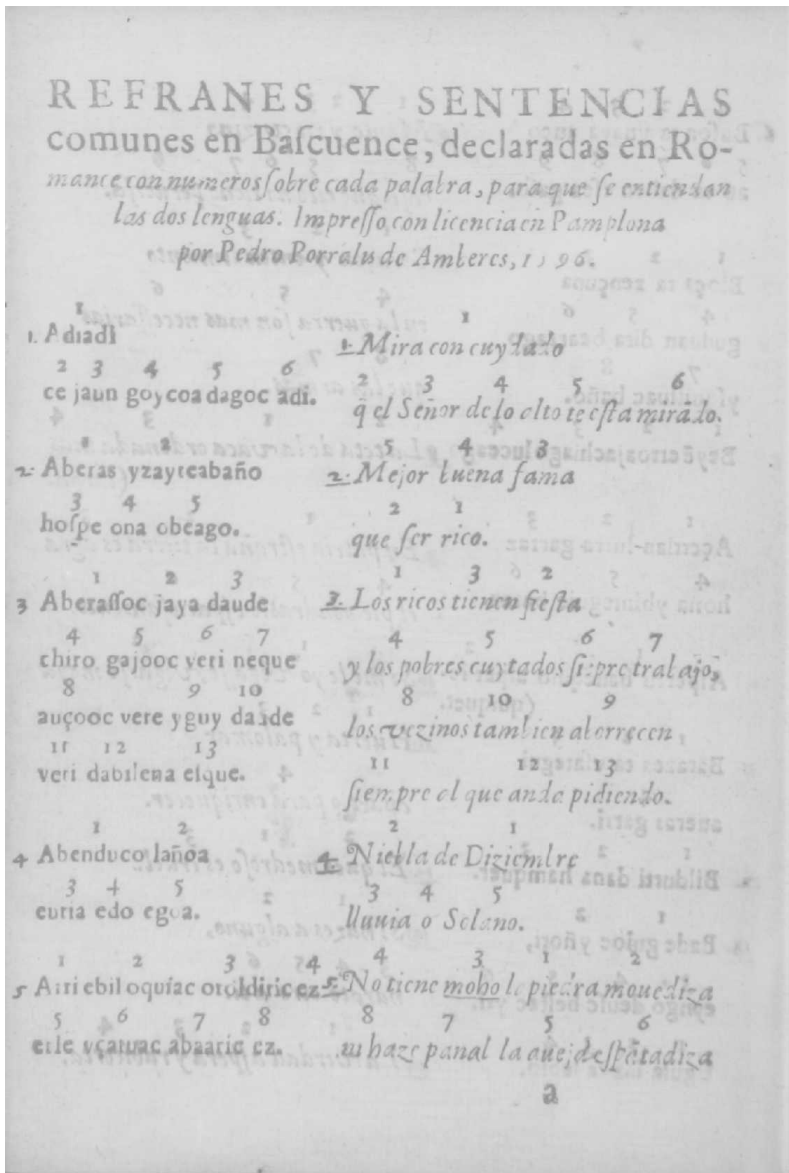 REFRANES Y SENTENCIAS
comunes en Baſcuence, declaradas en Ro-
mance con numeros ſobre cada palabra, para que ſe entiendan
las dos lenguas. Impreſſo con licencia en Pamplona
por Pedro Porralis de Amberes, 1596.
1
1. Adiadi
2 3 4 5 6
ce jaun goycoa dagoc adi.
1 2
2. Aberas yzayteabaño
3 4 5
hoſpe ona obeago.
1 2 3
3 Aberaſſoc jaya daude
4 5 6 7
chiro gajooc veri neque
8 9 10
auçooc vere yguy daude
11 12 13
veri dabilena eſque.
1 2
4 Abenduco lañoa
3 4 5
euria edo egoa.
1 2 3 4
5 Arri ebil oquiac oroldiric ez
5 6 7 8
erle abaaric ez.
1
1. Mira con cuydado
2 3 4 5 6
q̃ el Señor de lo alto te eſta mirãdo.
5 4 3
2. Mejor buena fama
2 1
que ſer rico.
1 3 2
3. Los ricos tienen fieſta
4 5 6 7
y los pobres cuytados ſiẽpre trabajo,
8 10 9
los vezinos tambien aborrecen
11 12 13
ſiempre el que anda pidiendo.
2 1
4. Niebla de Diziembre
3 4 5
lluuia o Solano.
4 3 1 2
5. No tiene moho la piedra mouediza
8 7 5 6
ni haze panal la aueja eſpãtadiza
a